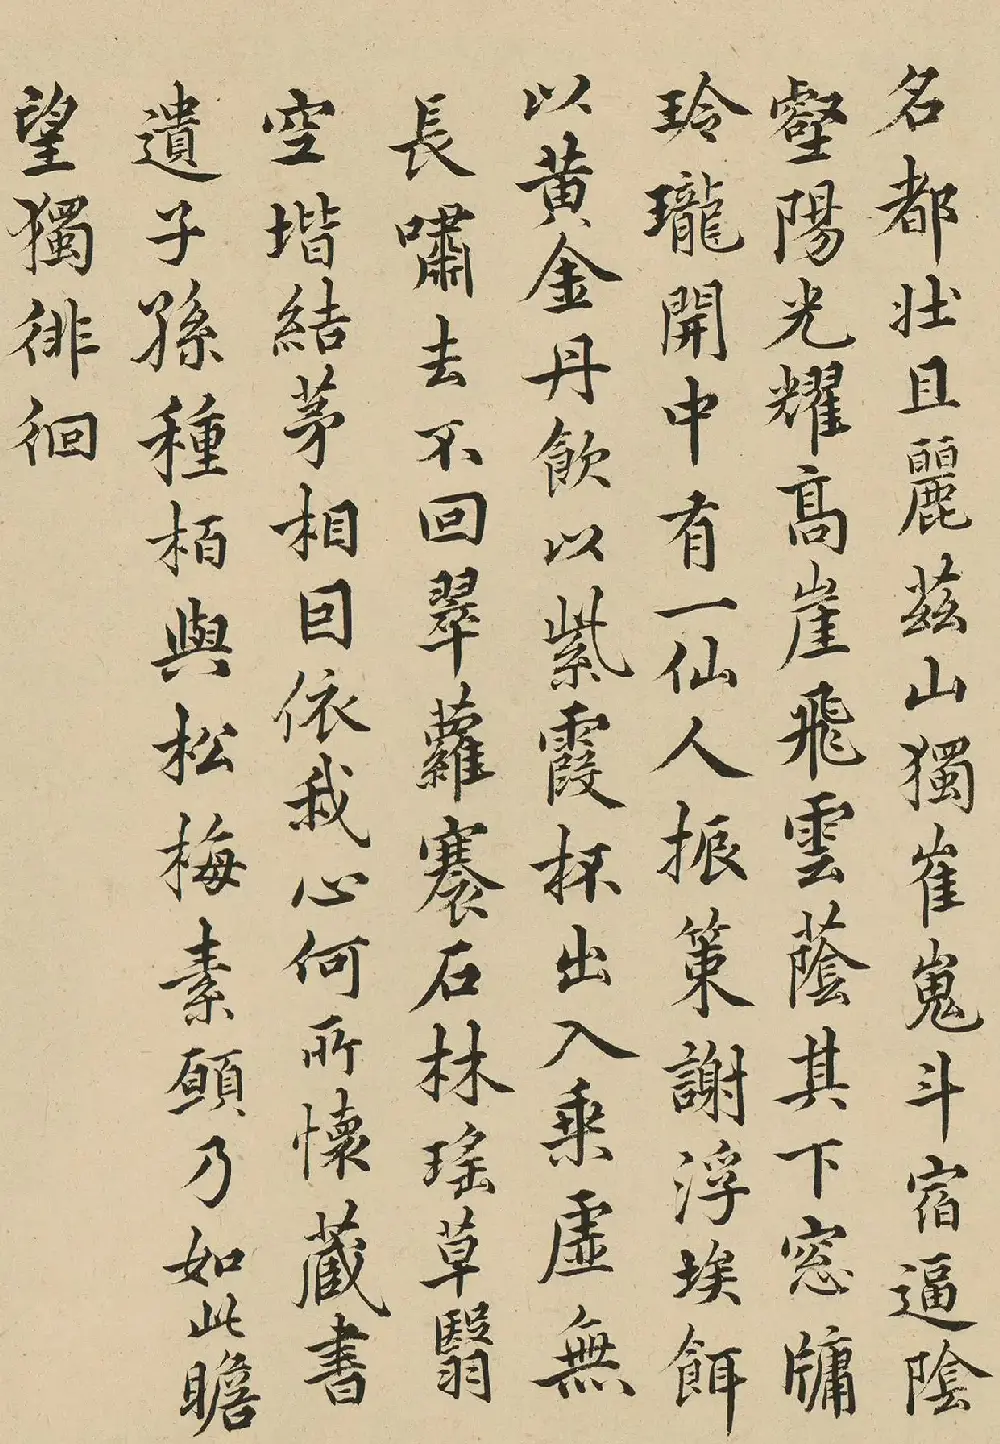 名都壯且麗茲山獨崔嵬斗宿逼陰
壑陽光耀高崖飛雲蔭其下窓牖
玲瓏開中有一仙人振策謝浮埃餌
以黃金丹飲以紫霞杯出入乘虛無
長嘯去不回翠蘿褰石林瑤草翳
空堦結茅相因依我心何所懷藏書
遺子孫種栢與松梅素願乃如此瞻
望獨徘徊